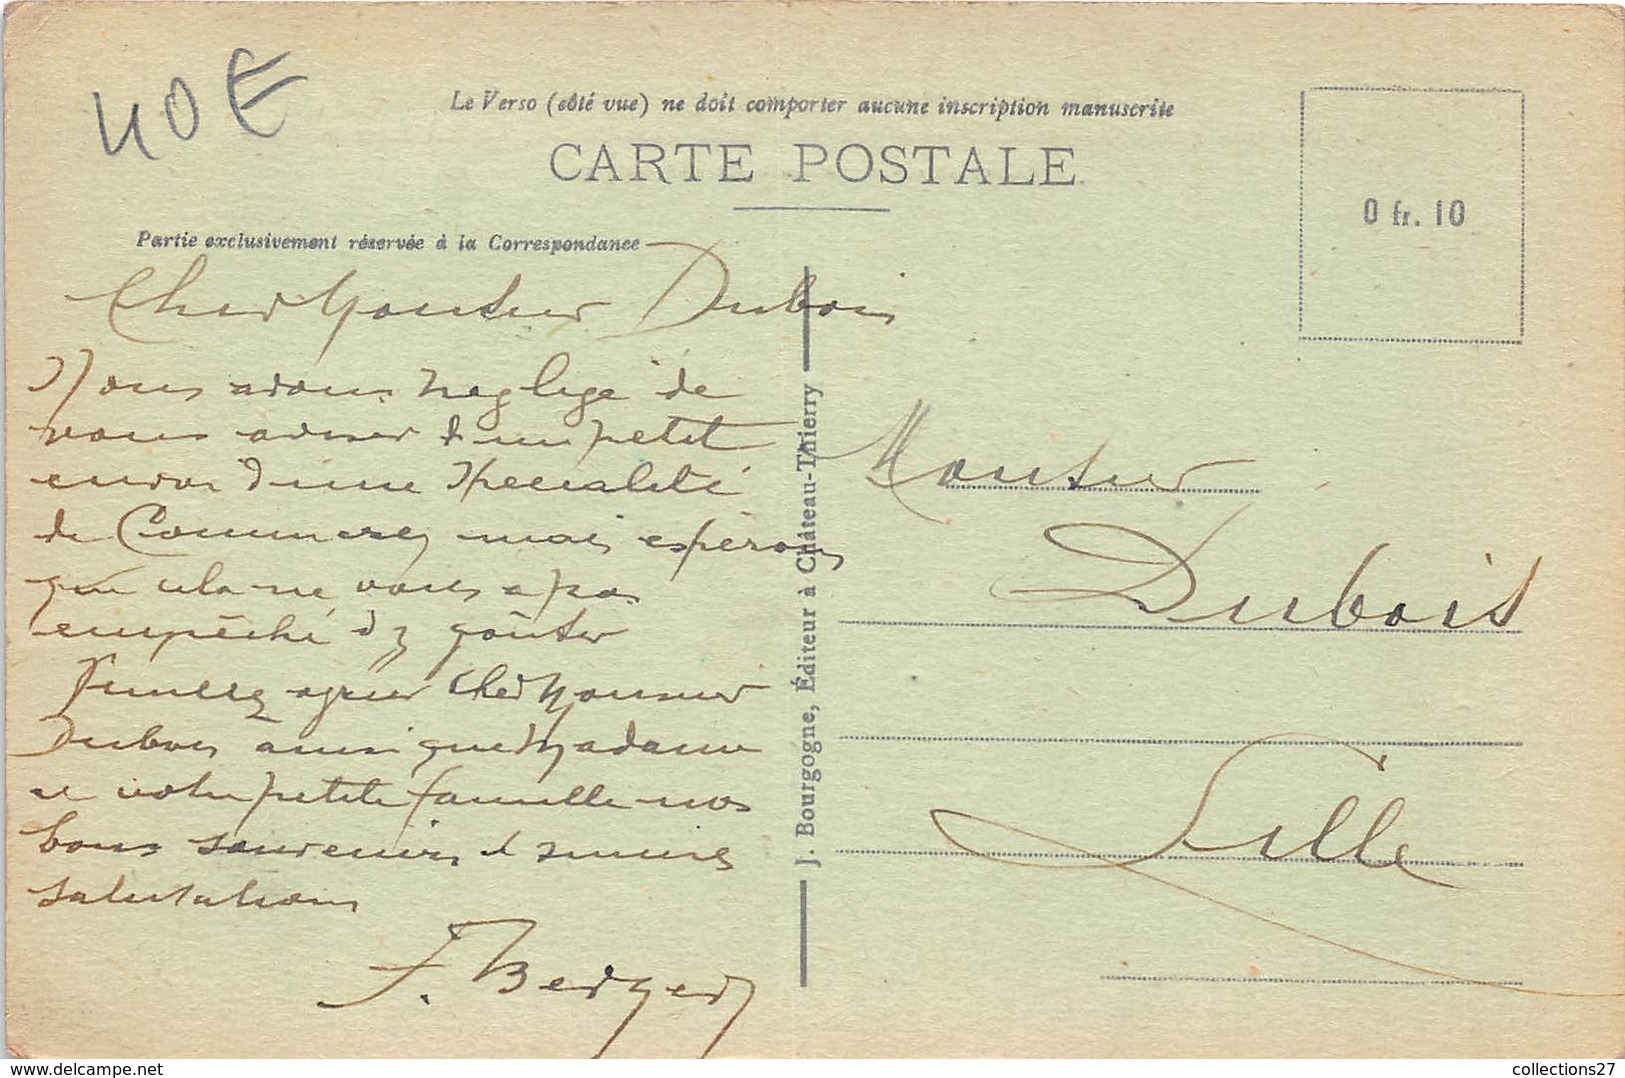 40 E
Le Verso (côté vue) ne doit comporter aucune inscription manuscrite
CARTE POSTALE
0 fr. 10
Partie exclusivement réservée à la Correspondance
Cher Monsieur Dubois
Nous avons négligé de
vous aviser d'un petit
envoi d'une spécialité
de Commercy mais espérons
que cela ne vous a pas
empêché d'y goûter
Veuillez agréer cher Monsieur
Dubois ainsi que Madame
et votre petite famille nos
bons souvenirs et sincères
salutations
J. Bourgogne, Éditeur à Château-Thierry
Monsieur
Dubois
Lille
www.delcampe.net
collections27